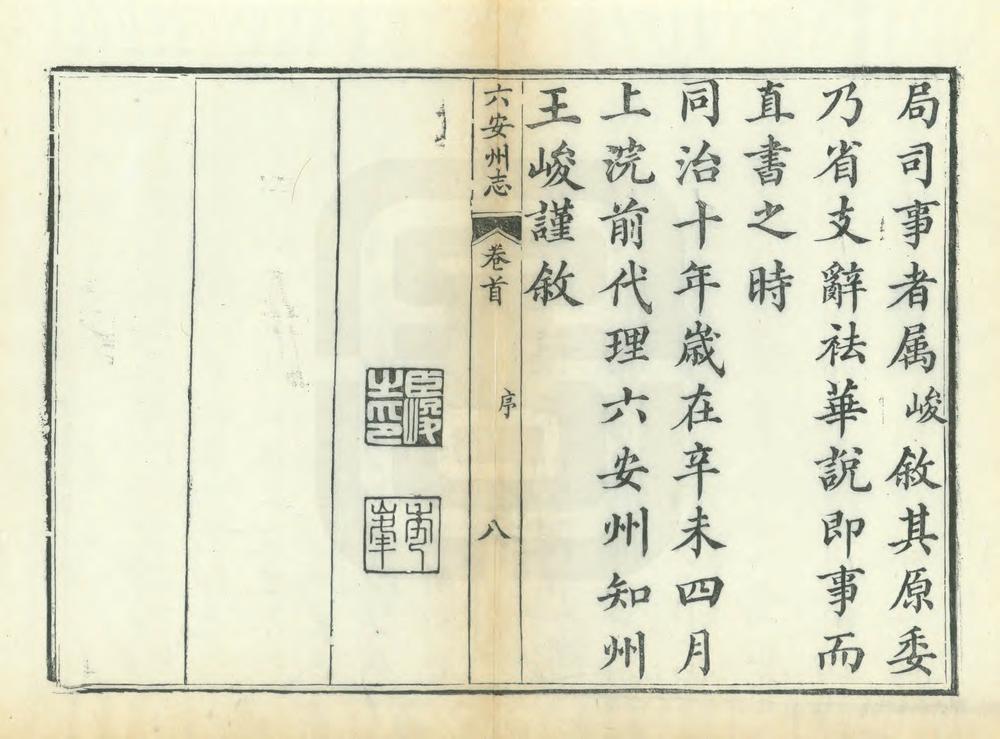 局司事者属峻敘其原委
乃省支辭祛華說即事而
直書之時
同治十年歲在辛未四月
上浣前代理六安州知州
王峻謹敘
六安州志
卷首
序
八
臣峻之印